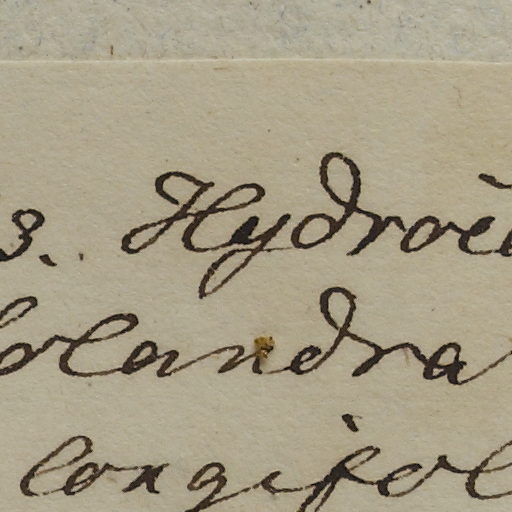 s. Hydroc
olandra
longifol